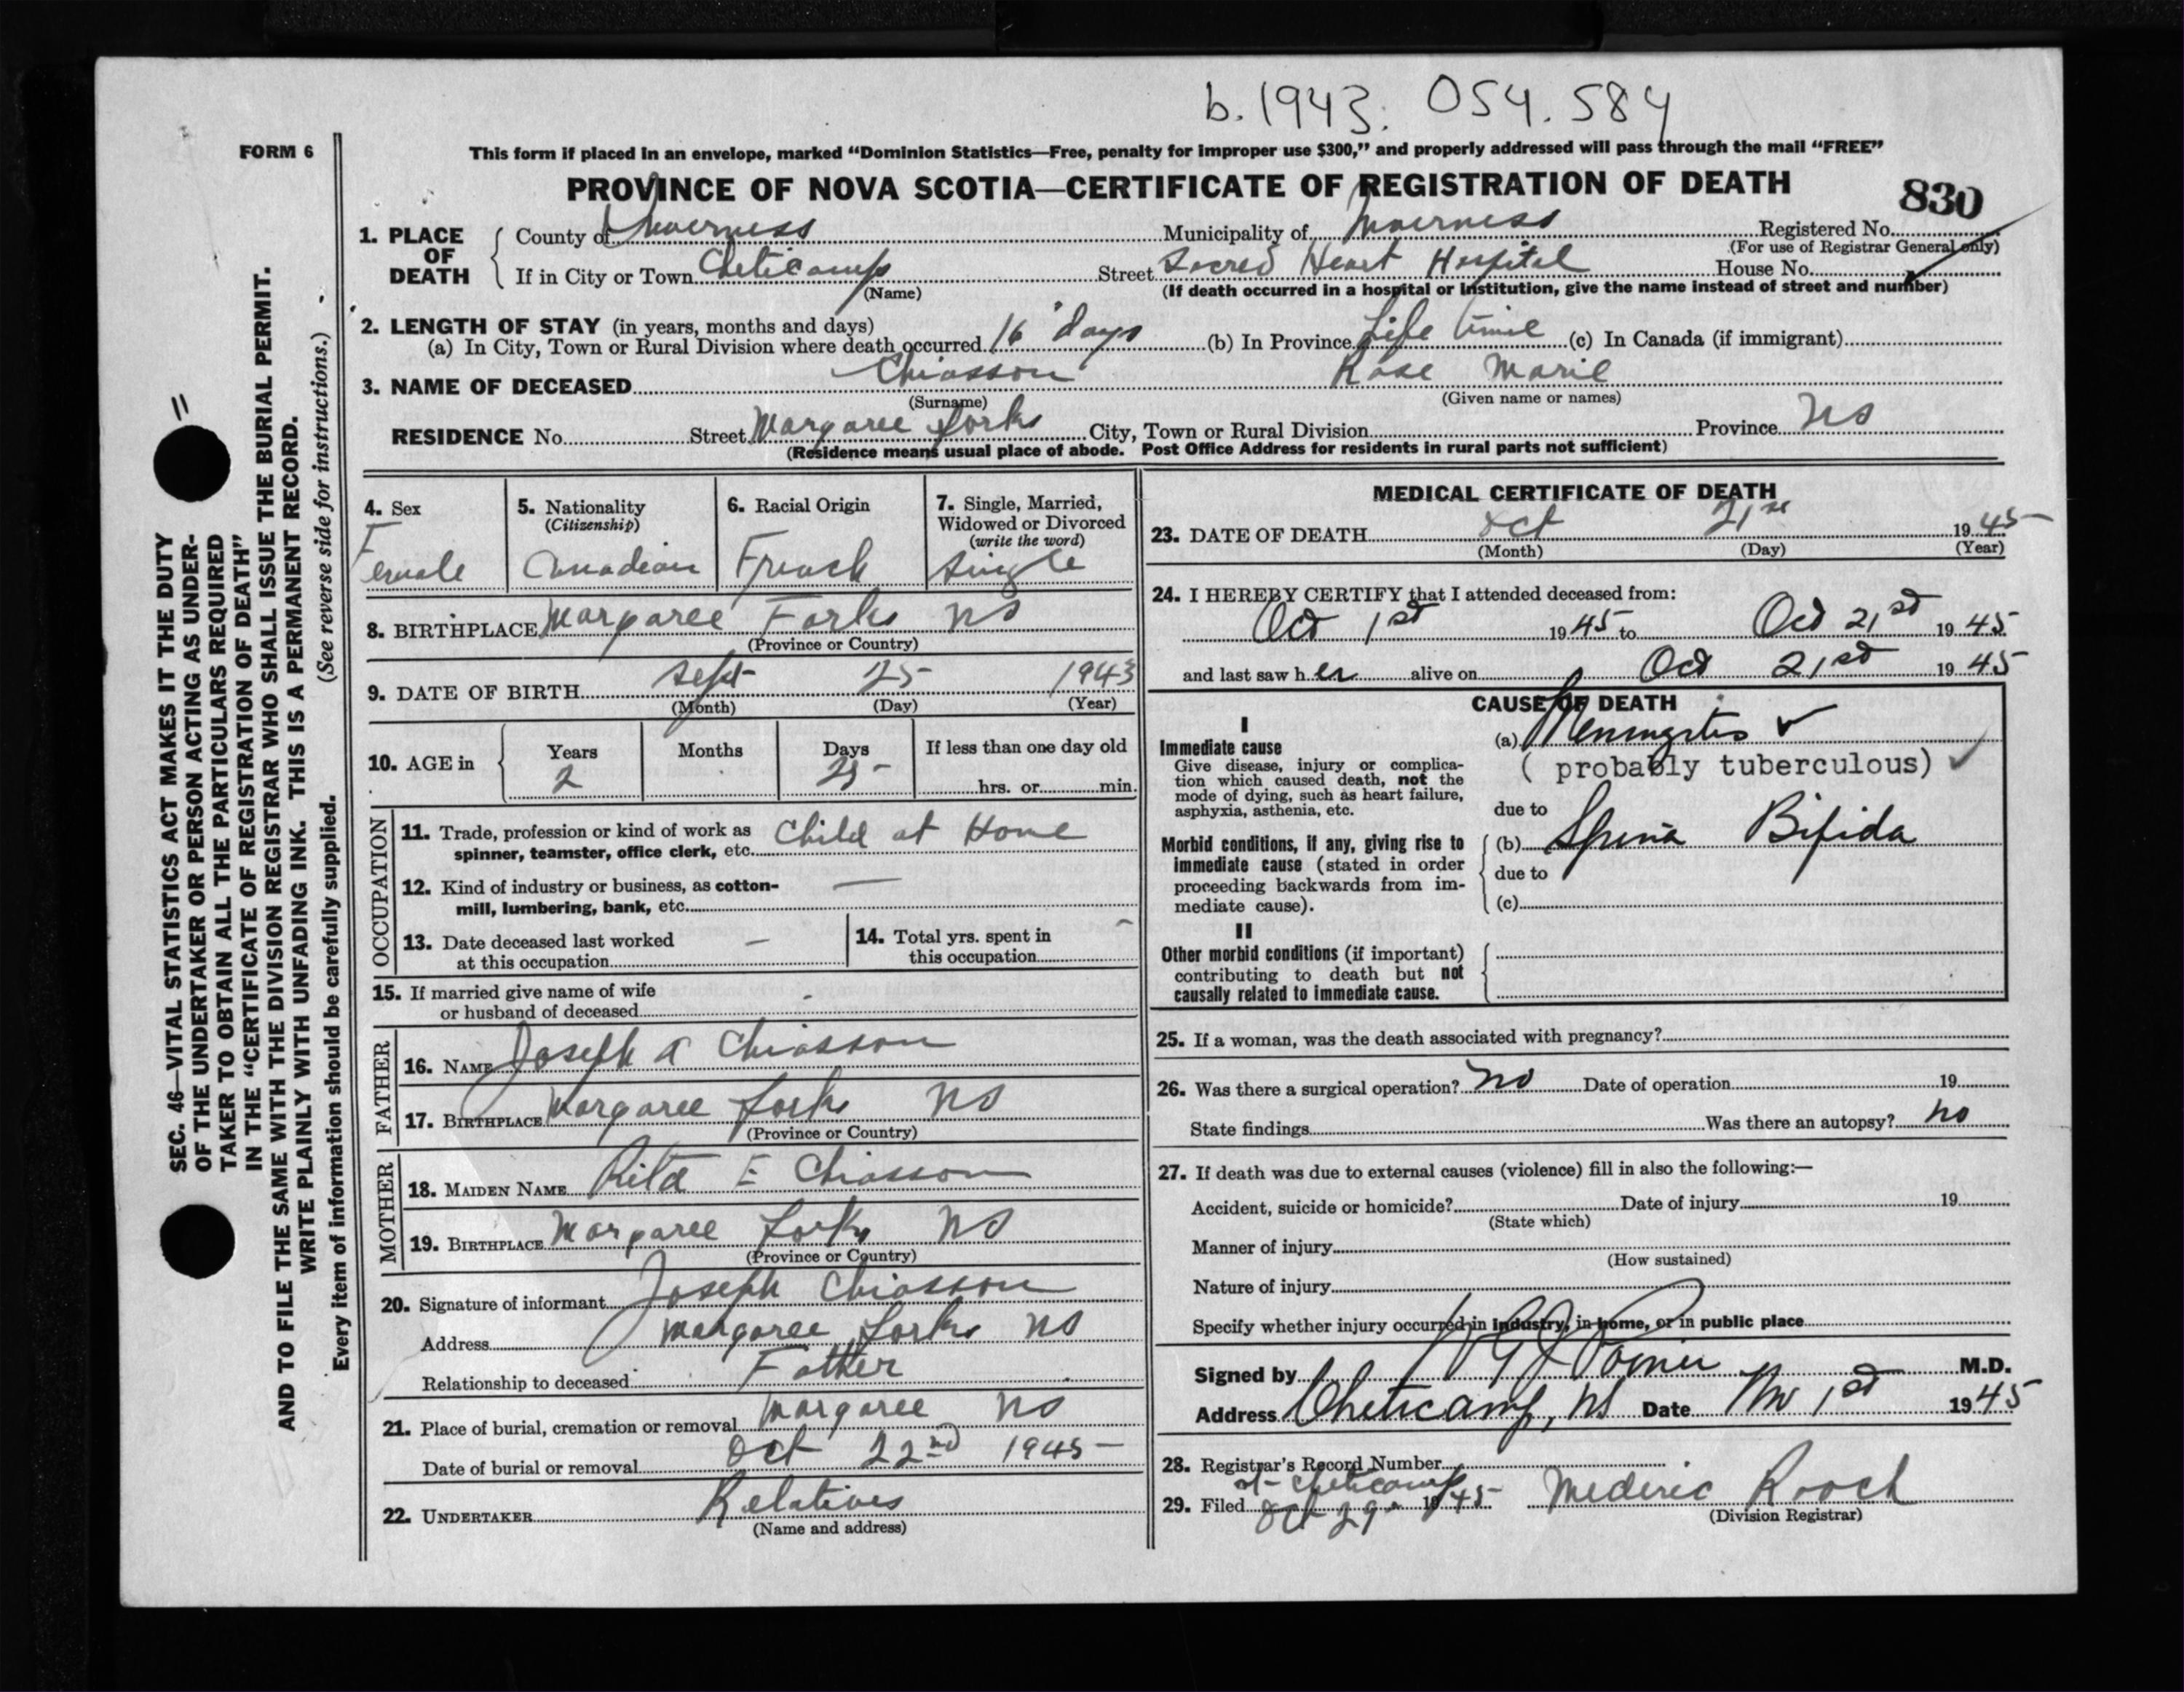 b. 1943. 054. 584
FORM 6
This form if placed in an envelope, marked “Dominion Statistics—Free, penalty for improper use $300,” and properly addressed will pass through the mail “FREE”
PROVINCE OF NOVA SCOTIA—CERTIFICATE OF REGISTRATION OF DEATH
830
1. PLACE OF DEATH
County of Inverness Municipality of Inverness Registered No.
(For use of Registrar General only)
If in City or Town Cheticamp Street Sacred Heart Hospital House No.
(Name) (If death occurred in a hospital or institution, give the name instead of street and number)
2. LENGTH OF STAY (in years, months and days)
(a) In City, Town or Rural Division where death occurred 16 days (b) In Province Life time (c) In Canada (if immigrant)
3. NAME OF DECEASED Chiasson Rose Marie
(Surname) (Given name or names)
RESIDENCE No. Street Margaree Forks City, Town or Rural Division Province NS
(Residence means usual place of abode. Post Office Address for residents in rural parts not sufficient)
4. Sex
Female
5. Nationality
(Citizenship)
Canadian
6. Racial Origin
French
7. Single, Married,
Widowed or Divorced
(write the word)
Single
8. BIRTHPLACE Margaree Forks NS
(Province or Country)
9. DATE OF BIRTH Sept 25 1943
(Month) (Day) (Year)
10. AGE in
Years Months Days If less than one day old
2 25 hrs. or min.
OCCUPATION
11. Trade, profession or kind of work as
spinner, teamster, office clerk, etc. Child at Home
12. Kind of industry or business, as cotton-
mill, lumbering, bank, etc. —
13. Date deceased last worked
at this occupation —
14. Total yrs. spent in
this occupation -
15. If married give name of wife
or husband of deceased -
FATHER
16. NAME Joseph A Chiasson
17. BIRTHPLACE Margaree Forks NS
(Province or Country)
MOTHER
18. MAIDEN NAME Rita E Chiasson
19. BIRTHPLACE Margaree Forks NS
(Province or Country)
20. Signature of informant Joseph Chiasson
Address Margaree Forks NS
Relationship to deceased Father
21. Place of burial, cremation or removal Margaree NS
Date of burial or removal Oct 22nd 1945
22. UNDERTAKER Relatives
(Name and address)
MEDICAL CERTIFICATE OF DEATH
23. DATE OF DEATH Oct 21st 1945
(Month) (Day) (Year)
24. I HEREBY CERTIFY that I attended deceased from:
Oct 1st 1945 to Oct 21st 1945
and last saw her alive on Oct 21st 1945
CAUSE OF DEATH
I
Immediate cause
Give disease, injury or complica-
tion which caused death, not the
mode of dying, such as heart failure,
asphyxia, asthenia, etc.
(a) Meningitis ✓
( probably tuberculous) ✓
due to
Morbid conditions, if any, giving rise to
immediate cause (stated in order
proceeding backwards from im-
mediate cause).
(b) Spina Bifida
due to
(c)
II
Other morbid conditions (if important)
contributing to death but not
causally related to immediate cause.
25. If a woman, was the death associated with pregnancy?
26. Was there a surgical operation? No Date of operation 19
State findings Was there an autopsy? No
27. If death was due to external causes (violence) fill in also the following:—
Accident, suicide or homicide? Date of injury 19
(State which)
Manner of injury
(How sustained)
Nature of injury
Specify whether injury occurred in industry, in home, or in public place
Signed by M.D.
Address Cheticamp, NS Date Nov 1st 1945
28. Registrar's Record Number
at Cheticamp
29. Filed Oct 29 1945 Mederic Rooch
(Division Registrar)
SEC. 46—VITAL STATISTICS ACT MAKES IT THE DUTY
OF THE UNDERTAKER OR PERSON ACTING AS UNDER-
TAKER TO OBTAIN ALL THE PARTICULARS REQUIRED
IN THE “CERTIFICATE OF REGISTRATION OF DEATH”
AND TO FILE THE SAME WITH THE DIVISION REGISTRAR WHO SHALL ISSUE THE BURIAL PERMIT.
WRITE PLAINLY WITH UNFADING INK. THIS IS A PERMANENT RECORD.
Every item of information should be carefully supplied. (See reverse side for instructions.)